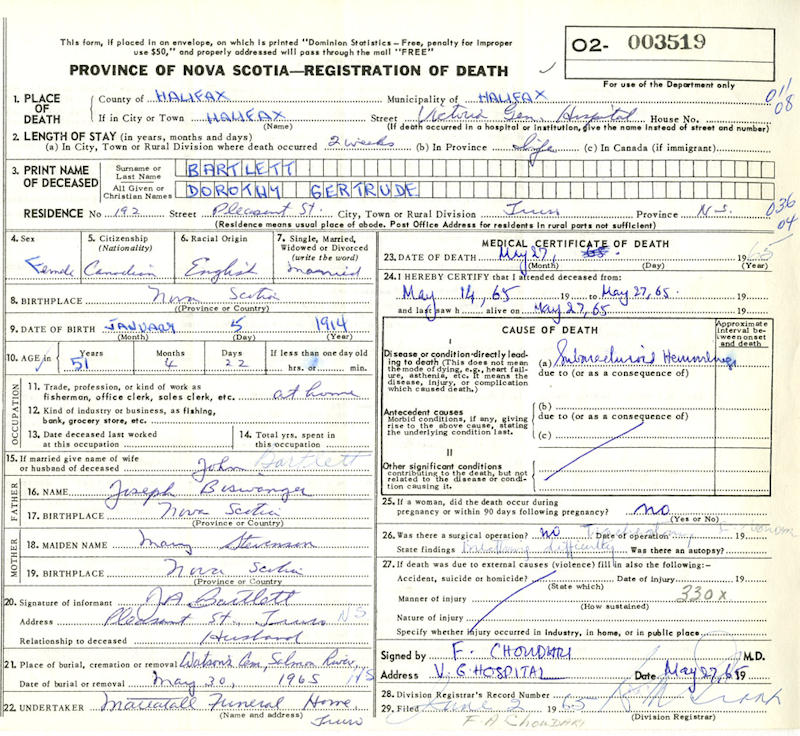 This form, if placed in an envelope, on which is printed "Dominion Statistics - Free, penalty for improper
use $50," and properly addressed will pass through the mail "FREE"
O2- 003519
PROVINCE OF NOVA SCOTIA—REGISTRATION OF DEATH
For use of the Department only
1. PLACE OF DEATH { County of HALIFAX Municipality of HALIFAX 011
If in City or Town HALIFAX Street Victoria Gen. Hospital House No. 08
(Name) (If death occurred in a hospital or institution, give the name instead of street and number)
2. LENGTH OF STAY (in years, months and days)
(a) In City, Town or Rural Division where death occurred 2 weeks (b) In Province Life (c) In Canada (if immigrant)
3. PRINT NAME OF DECEASED { Surname or Last Name BARTLETT
All Given or Christian Names DOROTHY GERTRUDE
RESIDENCE No 192 Street Pleasant St. City, Town or Rural Division Truro Province N.S. 036
04
(Residence means usual place of abode. Post Office Address for residents in rural parts not sufficient)
4. Sex Female
5. Citizenship (Nationality) Canadian
6. Racial Origin English
7. Single, Married, Widowed or Divorced (write the word) Married
8. BIRTHPLACE Nova Scotia
(Province or Country)
9. DATE OF BIRTH JANUARY 5 1914
(Month) (Day) (Year)
10. AGE in Years Months Days If less than one day old
51 4 22 hrs. or min.
OCCUPATION
11. Trade, profession, or kind of work as
fisherman, office clerk, sales clerk, etc. at home
12. Kind of industry or business, as fishing,
bank, grocery store, etc.
13. Date deceased last worked
at this occupation
14. Total yrs. spent in
this occupation
15. If married give name of wife
or husband of deceased John Bartlett
FATHER
16. NAME Joseph Biswanger
17. BIRTHPLACE Nova Scotia
(Province or Country)
MOTHER
18. MAIDEN NAME Mary Stevenson
19. BIRTHPLACE Nova Scotia
(Province or Country)
20. Signature of informant J A Bartlett
Address Pleasant St., Truro NS
Relationship to deceased Husband
21. Place of burial, cremation or removal Watson's Cem, Salmon River, NS
Date of burial or removal May 30, 1965
22. UNDERTAKER Mattatall Funeral Home,
(Name and address) Truro
MEDICAL CERTIFICATE OF DEATH
23. DATE OF DEATH May 27, 1965
(Month) (Day) (Year)
24. I HEREBY CERTIFY that I attended deceased from:
May 14, 65 19 to May 27, 65. 19
and last saw h alive on May 27, 65 19
CAUSE OF DEATH
Approximate interval between onset and death
I
Disease or condition directly leading to death (This does not mean the mode of dying, e.g., heart failure, asthenia, etc. It means the disease, injury, or complication which caused death.)
(a) Subarachnoid Hemorrhage
due to (or as a consequence of)
Antecedent causes
Morbid conditions, if any, giving rise to the above cause, stating the underlying condition last.
(b)
due to (or as a consequence of)
(c)
II
Other significant conditions
contributing to the death, but not related to the disease or condition causing it.
25. If a woman, did the death occur during
pregnancy or within 90 days following pregnancy? no
(Yes or No)
26. Was there a surgical operation? no Date of operation 19
State findings Breathing difficulty Was there an autopsy?
27. If death was due to external causes (violence) fill in also the following:-
Accident, suicide or homicide? Date of injury 19
(State which)
Manner of injury 330X
(How sustained)
Nature of injury
Specify whether injury occurred in industry, in home, or in public place
Signed by F. CHOUDARI M.D.
Address V. G HOSPITAL Date May 27, 65 19
28. Division Registrar's Record Number
29. Filed June 2 1965
(Division Registrar)
F. A CHOUDARI